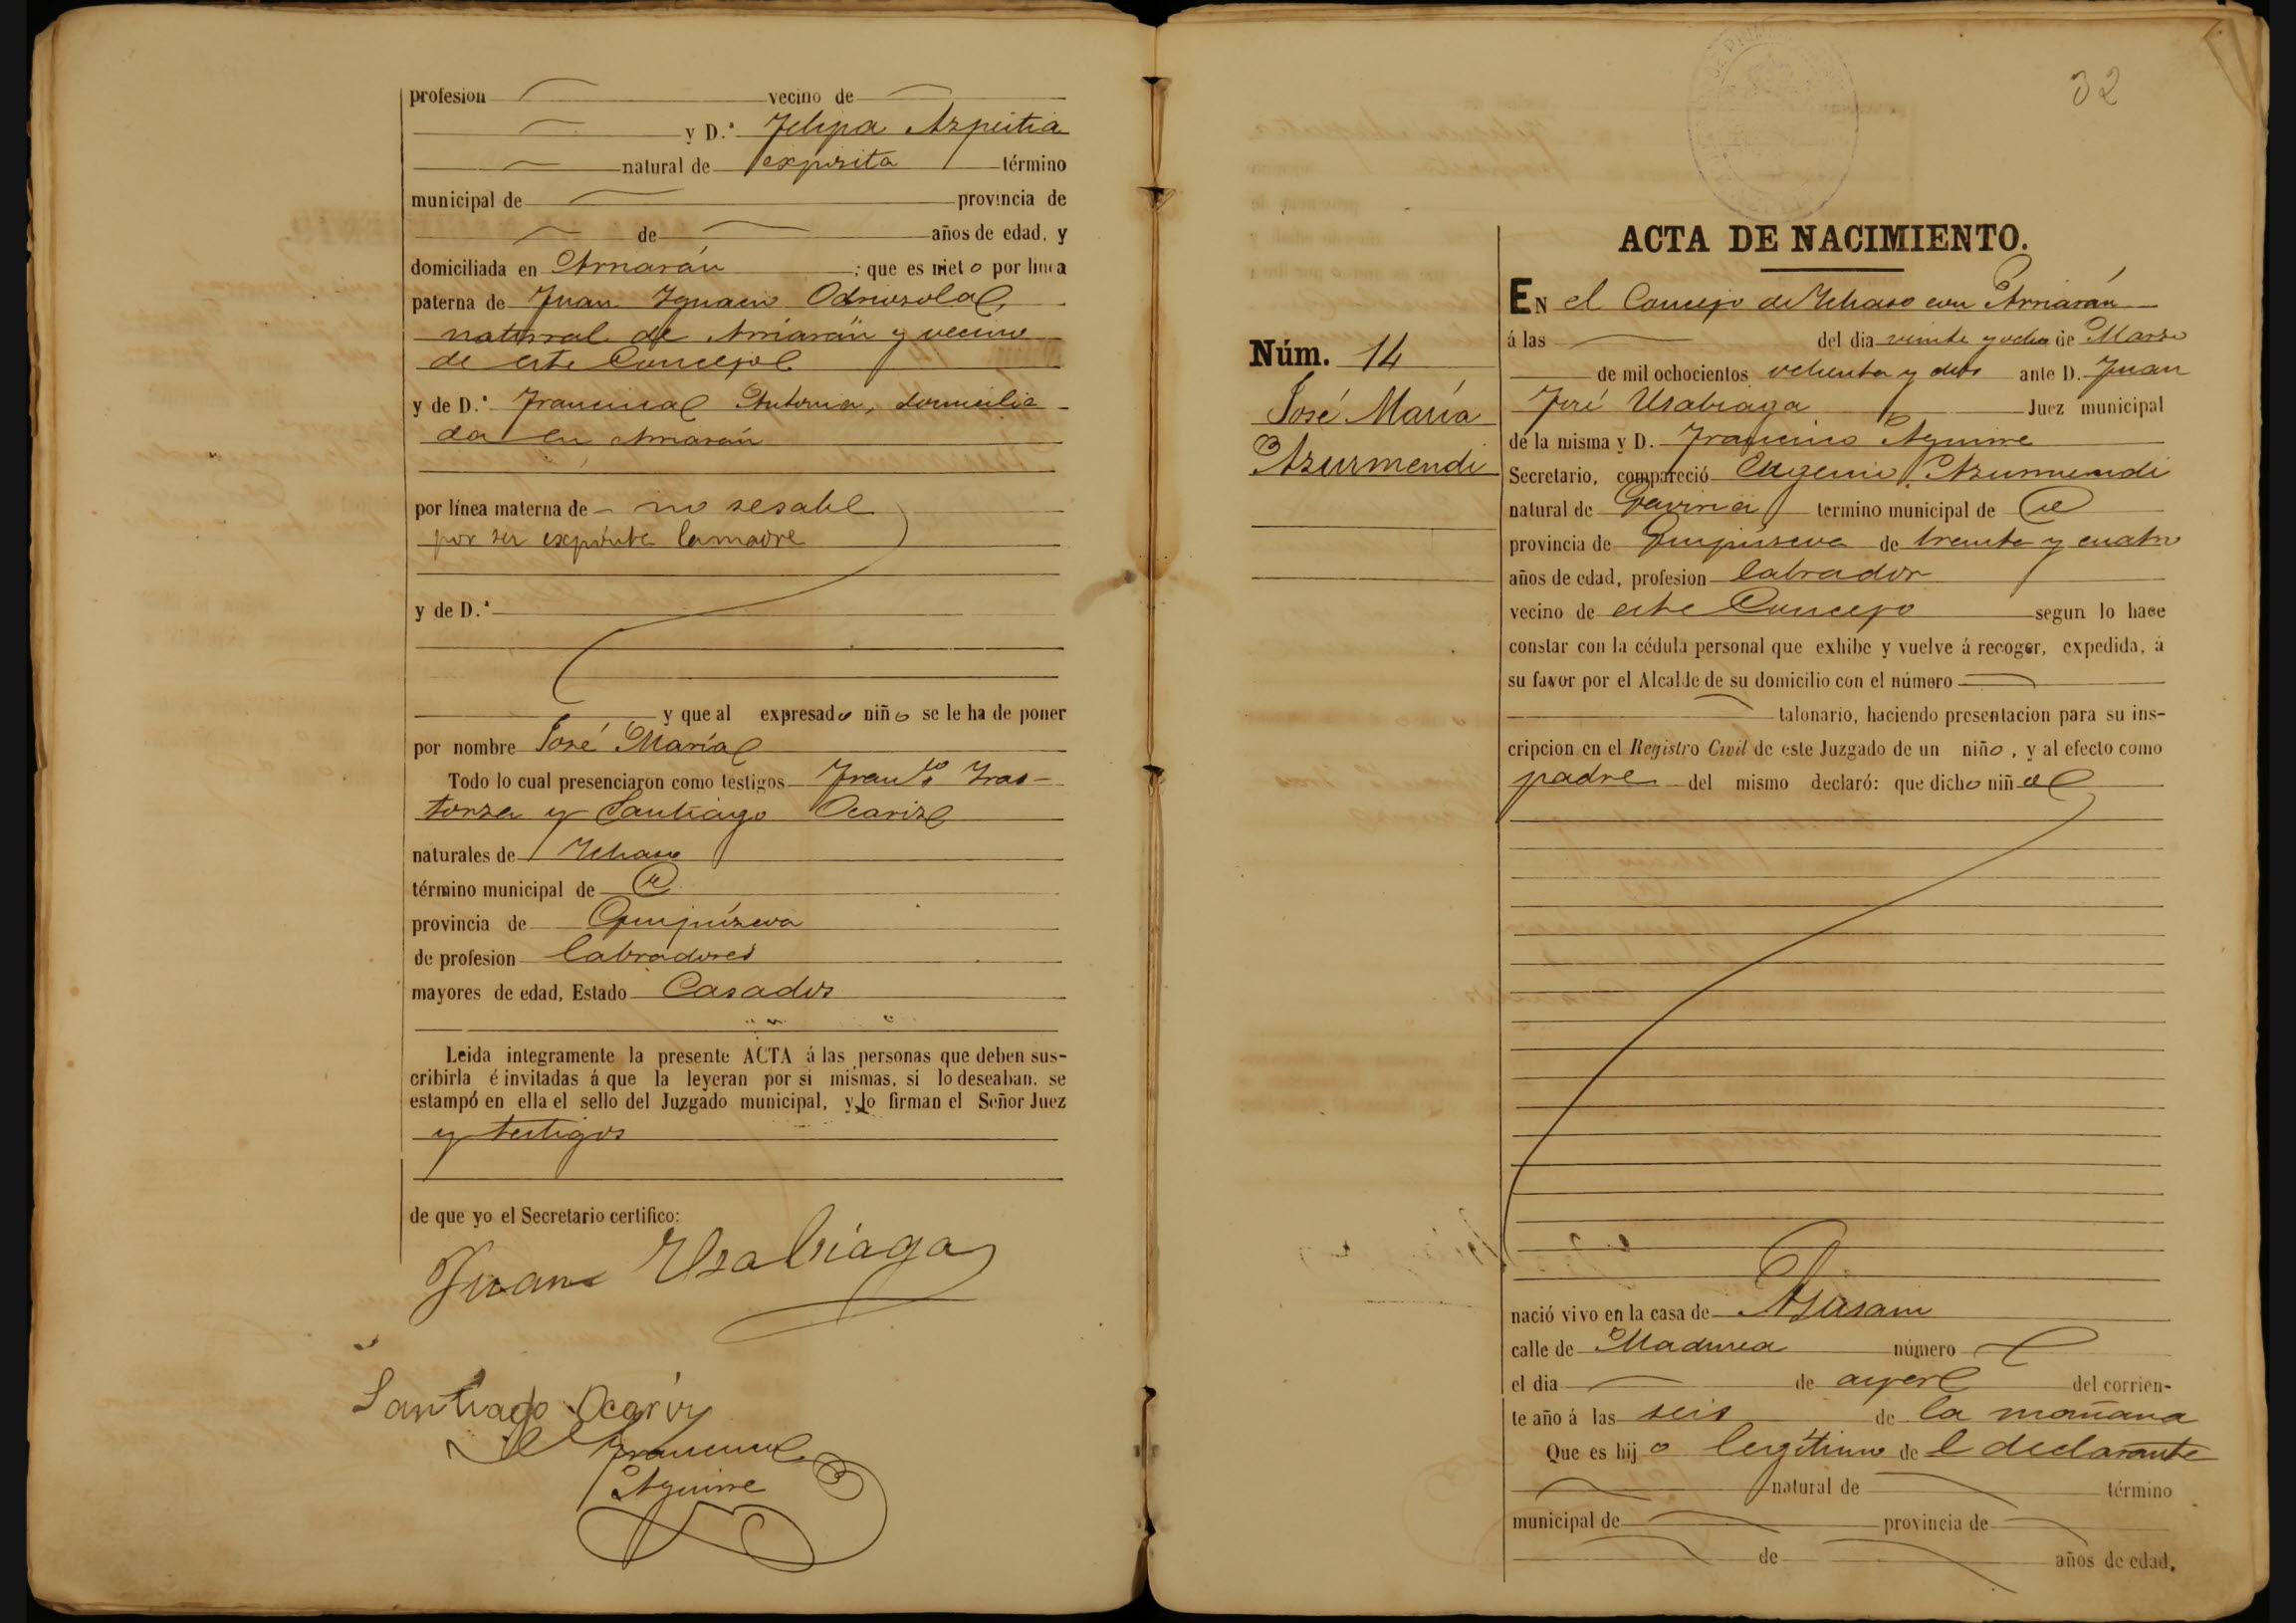 profesion vecino de
y D.ª Felipa Azpeitia
natural de expósita término
municipal de provincia de
de años de edad, y
domiciliada en Arriarán ; que es nieto por linea
paterna de Juan Ygnacio Odriozola
natural de Arriarán y vecino
de este Concejo
y de D.ª Francisca Antonia, domicilia
da en Arriarán
por línea materna de no sesabe
por ser expósita lamadre
y de D.ª
y que al expresado niño se le ha de poner
por nombre José María
Todo lo cual presenciaron como testigos Fran.co Yras-
torza y Santiago Ocariz
naturales de Ychaso
término municipal de id
provincia de Guipúzcoa
de profesion labradores
mayores de edad, Estado Casados
Leida integramente la presente ACTA á las personas que deben sus-
cribirla é invitadas á que la leyeran por si mismas, si lo deseaban, se
estampó en ella el sello del Juzgado municipal, y lo firman el Señor Juez
y testigos
de que yo el Secretario certifico:
Juan Usabiaga
Santiago Ocariz
Francisco
Aguirre
32
ACTA DE NACIMIENTO.
EN el Concejo de Ychaso con Arriarán
á las del dia veinte y ocho de Marzo
de mil ochocientos ochenta y dos ante D. Juan
José Usabiaga Juez municipal
de la misma y D. Francisco Aguirre
Secretario, compareció Eugenio Azurmendi
natural de Gaviria termino municipal de id
provincia de Guipúzcoa de treinta y cuatro
años de edad, profesion labrador
vecino de este Concejo segun lo hace
constar con la cédula personal que exhibe y vuelve á recoger, expedida, á
su favor por el Alcalde de su domicilio con el número
talonario, haciendo presentacion para su ins-
cripcion en el Registro Civil de este Juzgado de un niño, y al efecto como
padre del mismo declaró: que dicho niño
Núm. 14
José María
Azurmendi
nació vivo en la casa de
calle de número
el dia de ayer del corrien-
te año á las seis de la mañana
Que es hijo legítimo de l declarante
natural de término
municipal de provincia de
de años de edad,